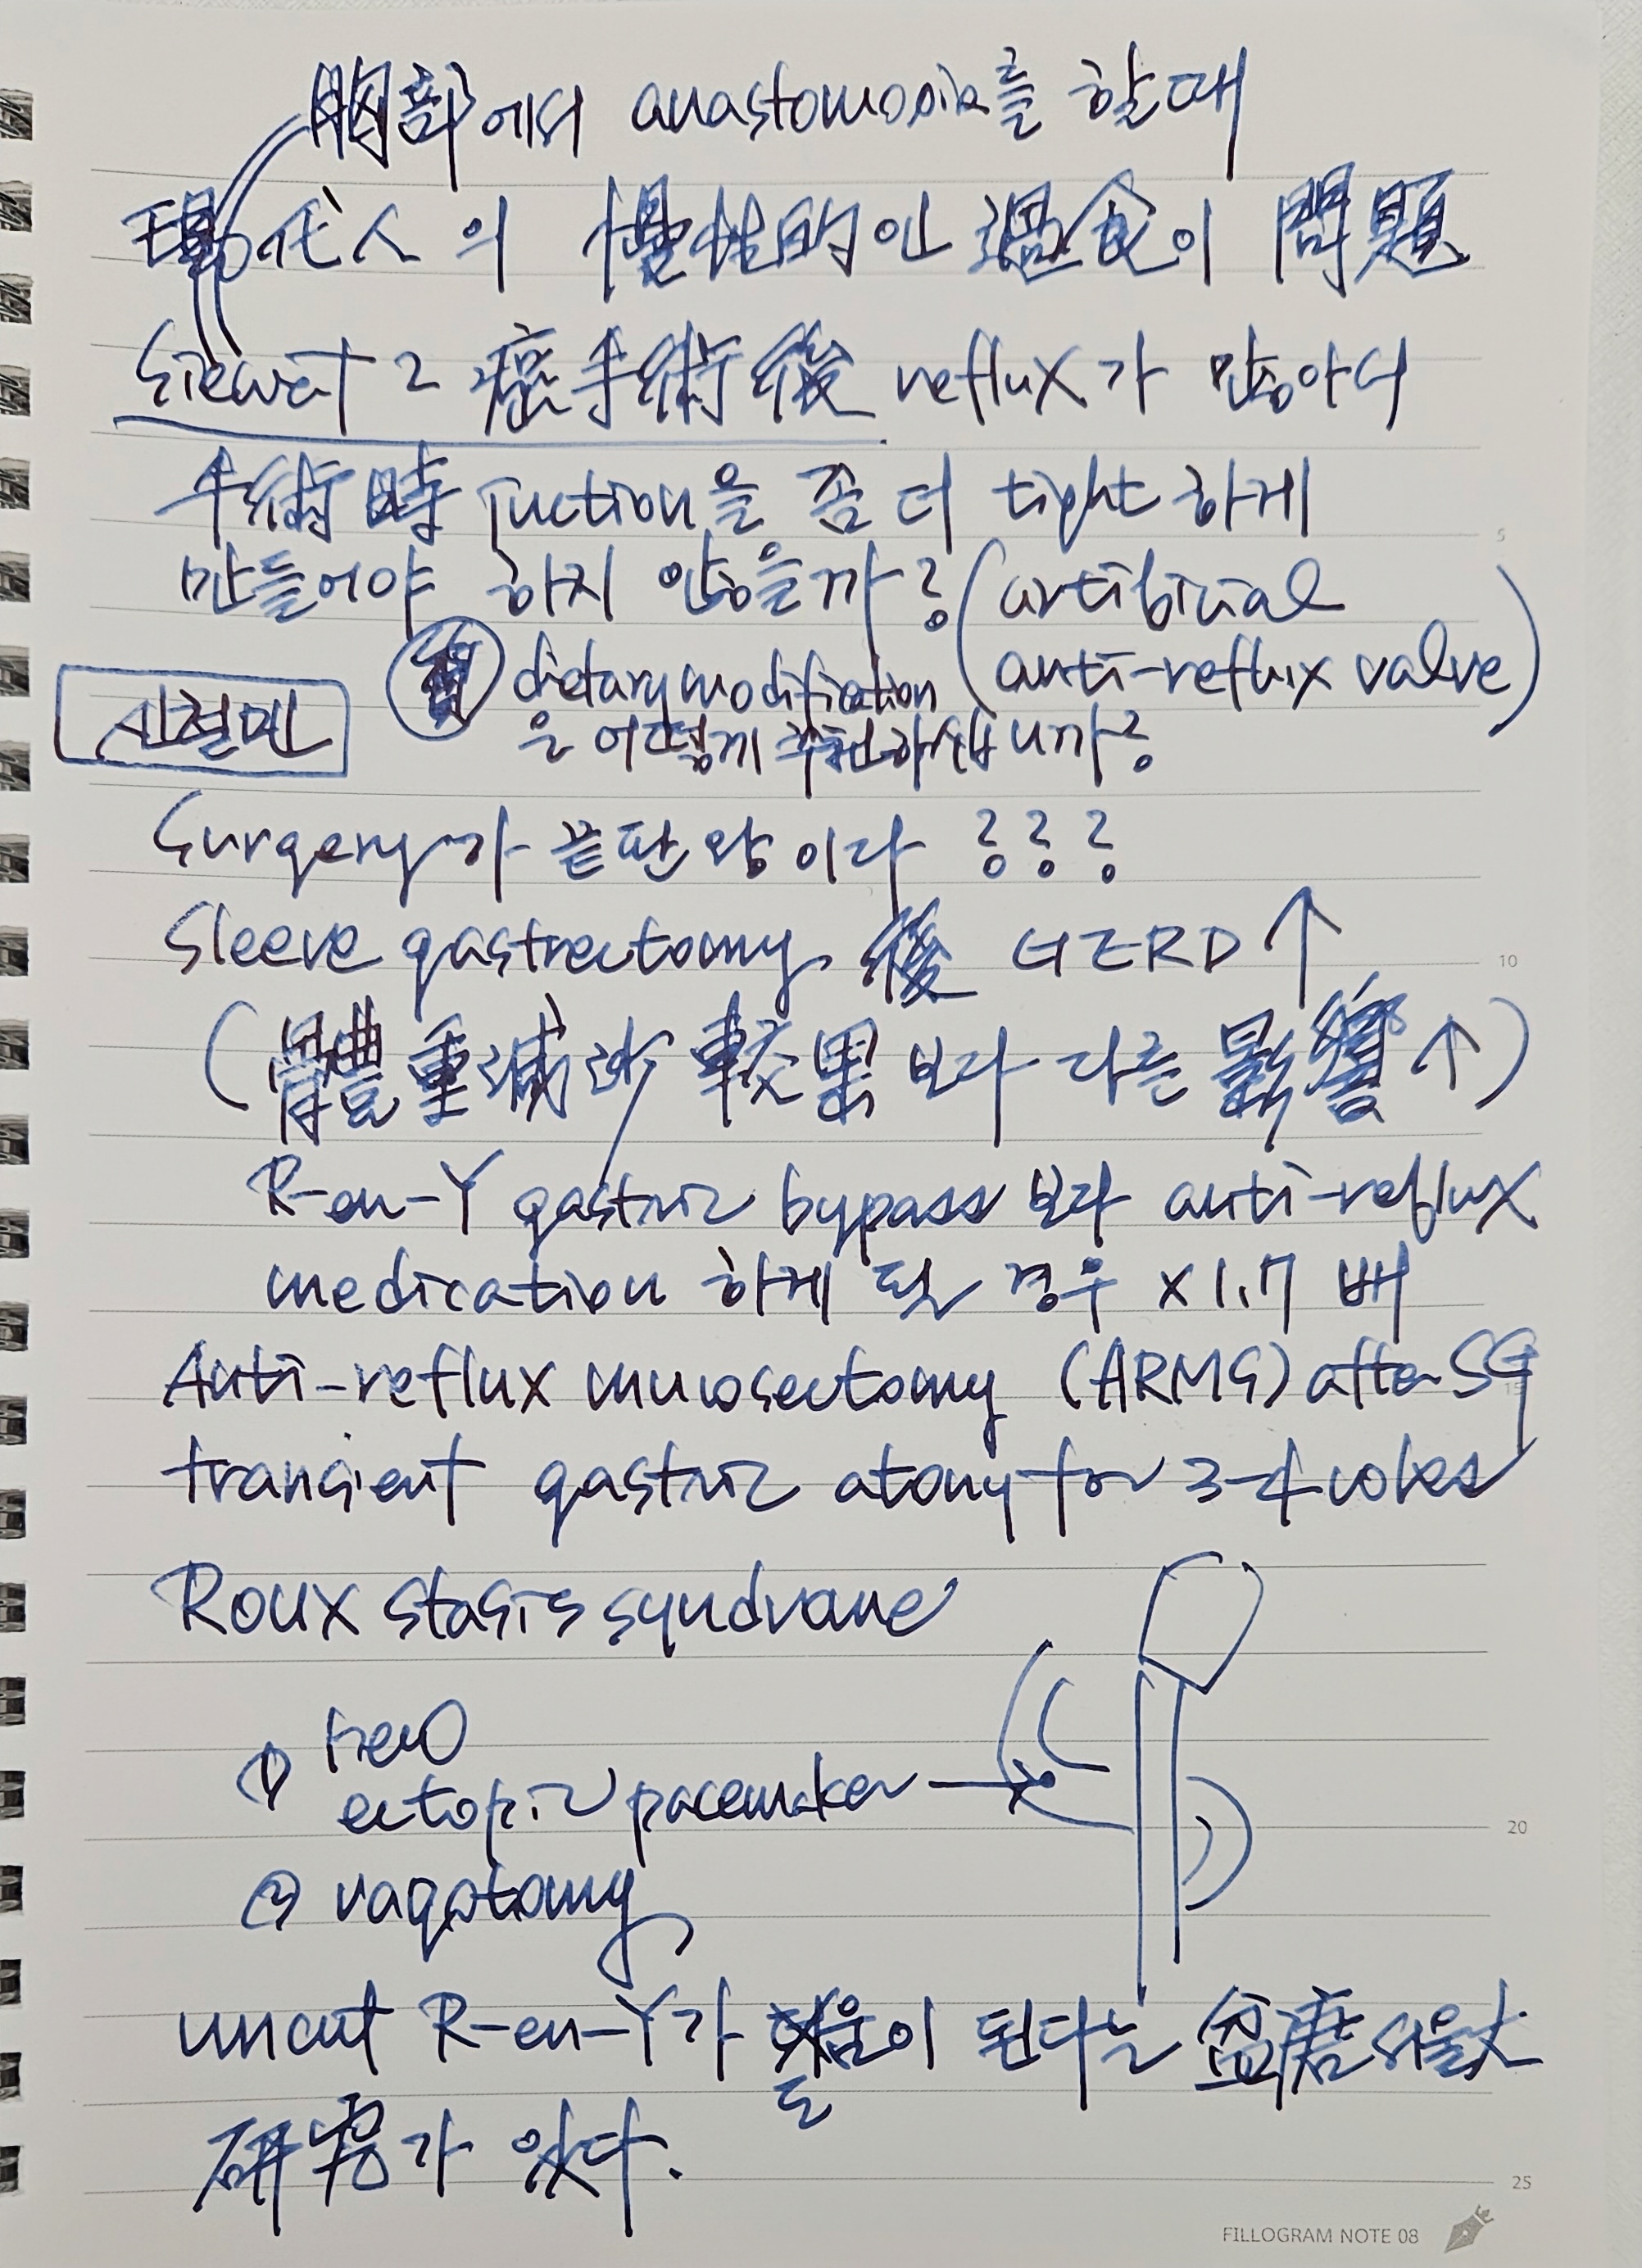 胸部에서 anastomosis를 할때
現代人의 慢性的인 過食이 問題
Siewert 2 癌手術後 reflux가 많아서
手術時 juction을 좀 더 tight하게
만들어야 하지 않을까? (artificial
anti-reflux valve)
質 dietary modification
을 어떻게 추천하십니까?
신철민
Surgery가 끝판왕이다 ???
Sleeve gastrectomy 後 GERD ↑
(體重減少 較果보다 다른 影響 ↑)
R-en-Y gastric bypass 보다 anti-reflux
medication 하게 될 경우 x1.7 배
Anti-reflux mucosectomy (ARMS) after SG
transient gastric atony for 3-4 wks
Roux stasis syndrome
① new
ectopic pacemaker →
② vagotomy
uncut R-en-Y가 도움이 된다는 盆唐서울大
研究가 있다.
5
10
15
20
25
FILLOGRAM NOTE 08